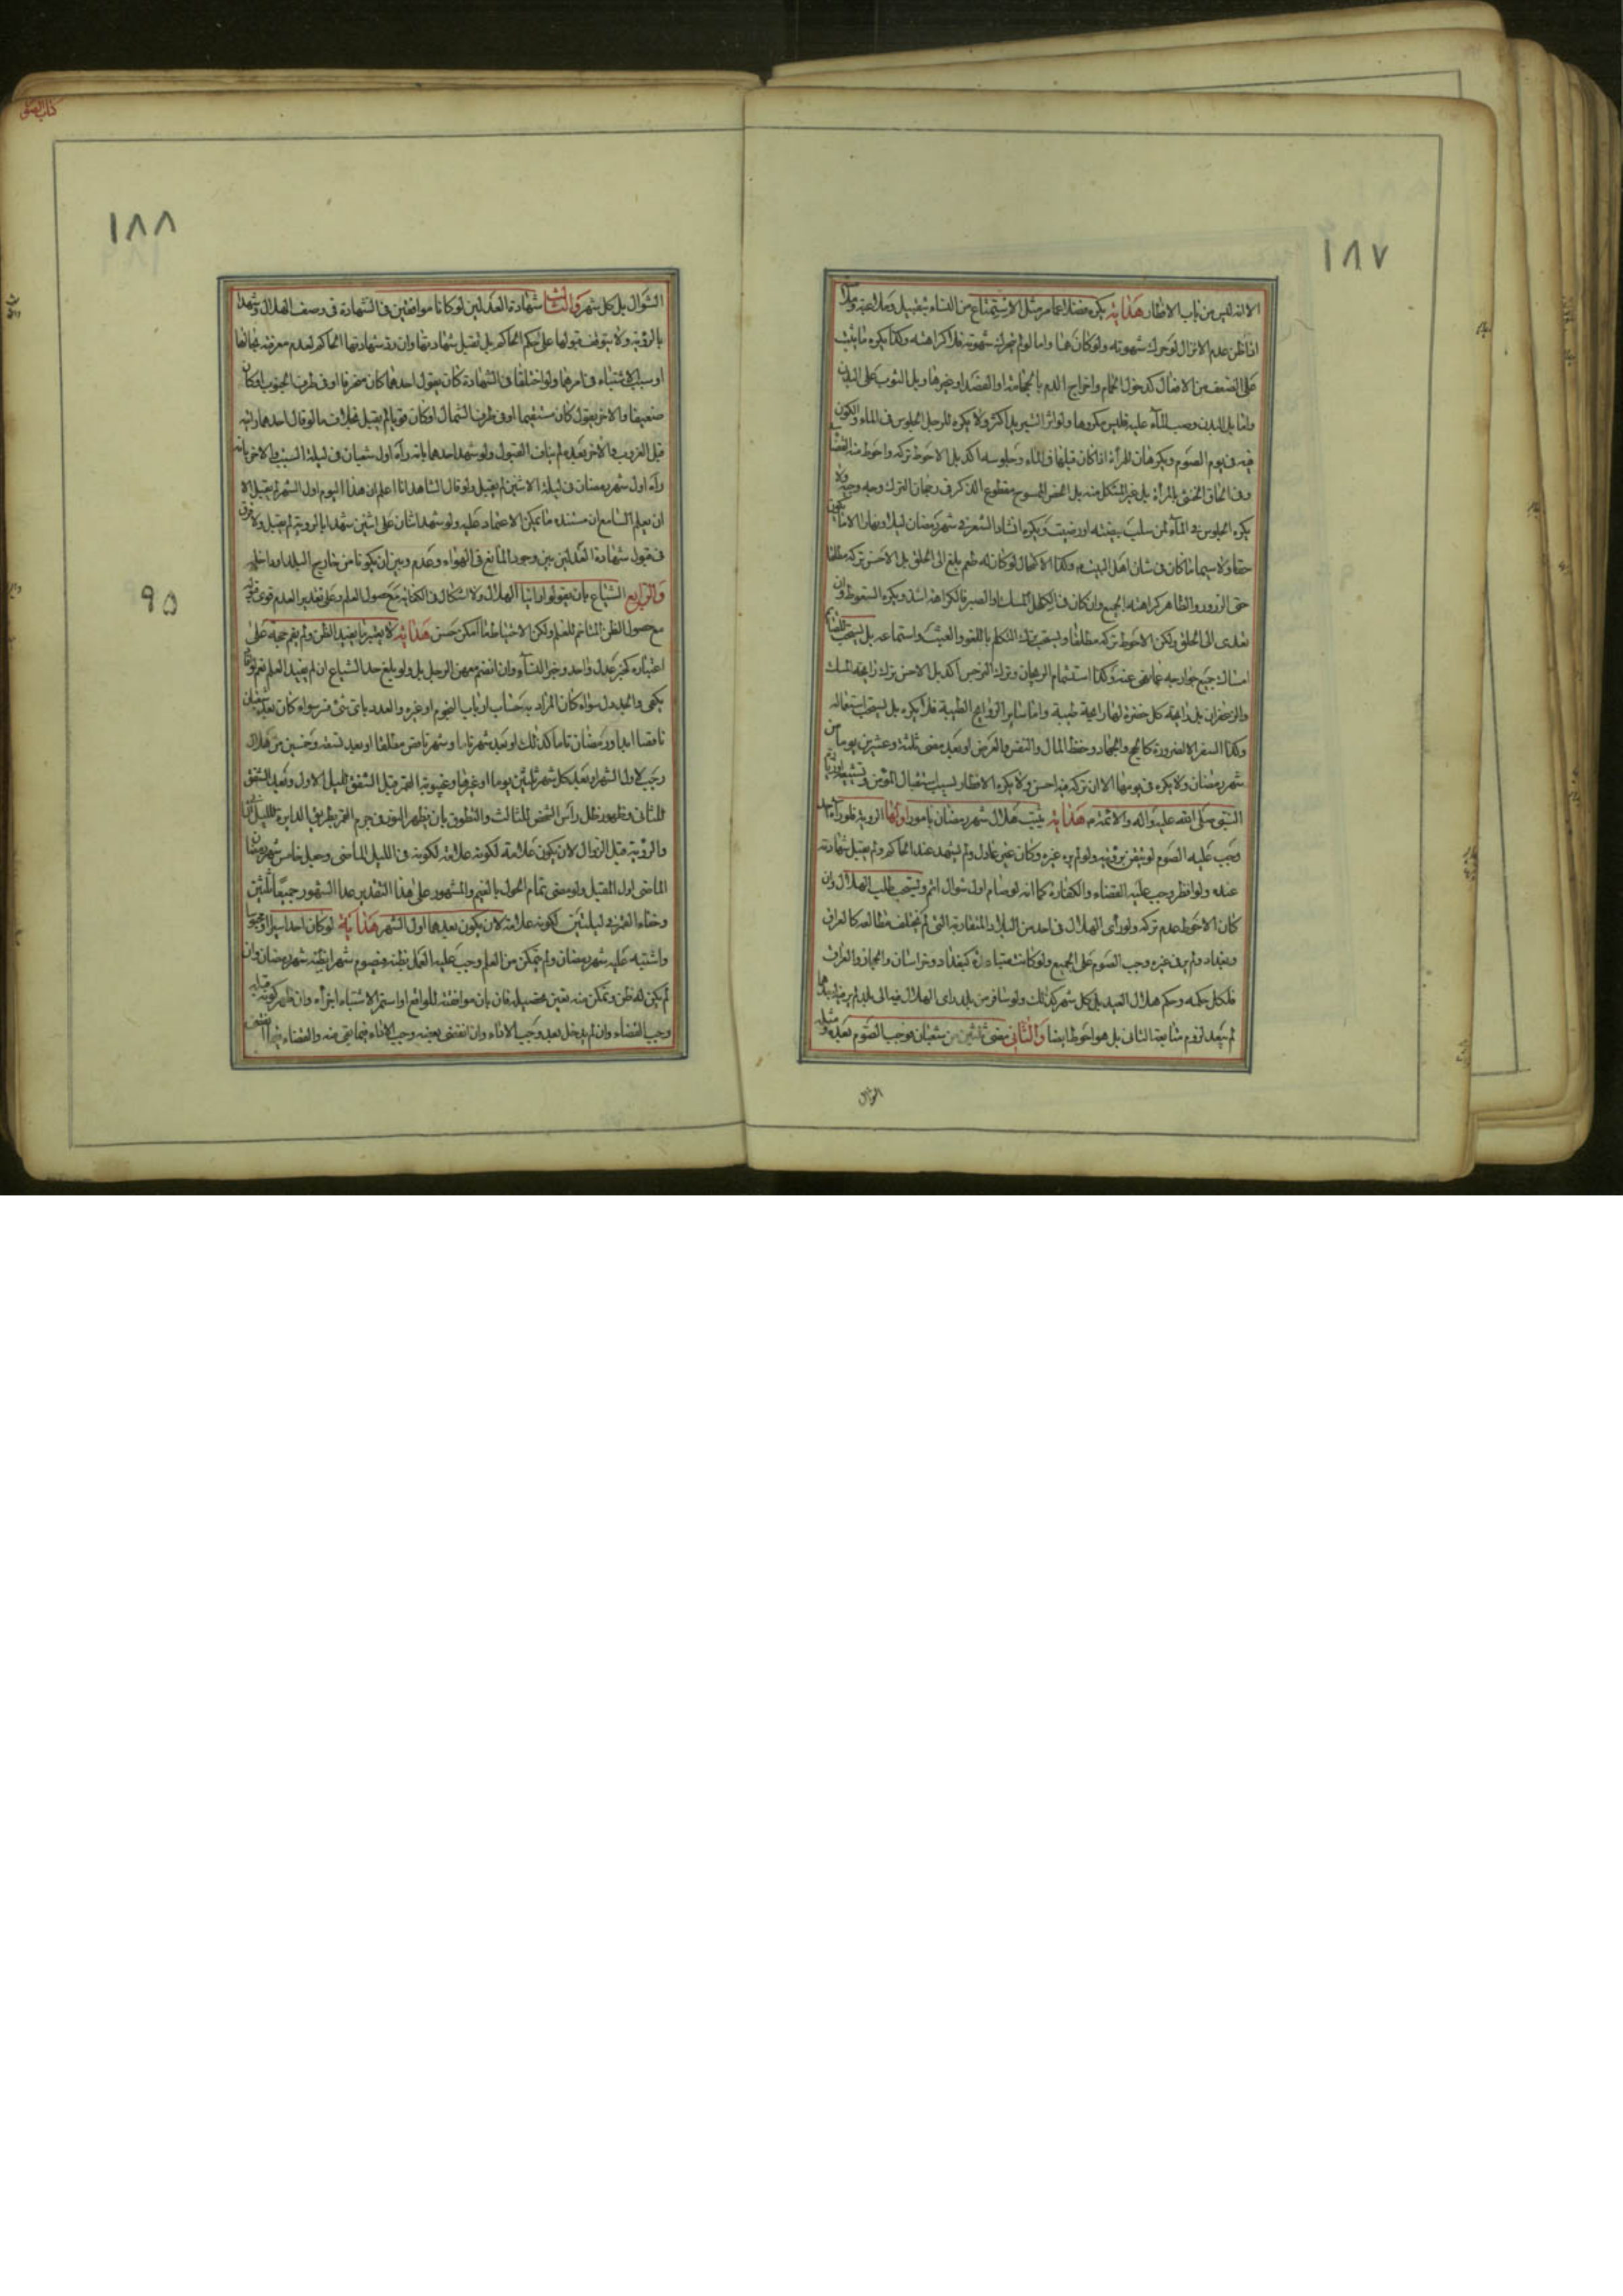 ١٨٧
الا انه ليس من باب الافطار هداية يكره مضافا لما مر مثل الاستمتاع من النساء بتقبيل وملاعبة
اذا ظن عدم الانزال لو حرك شهوته ولو كان هنا واما لو لم يتحرك شهوته فلا كراهته وكذا يكره ما يثبت
على الضعف من الافعال كدخول الحمام واخراج الدم بالحجامة او الفصد او غيرها وبل الثوب على البدن
واما بل البدن وصب الماء عليه فليس مكروها ولو اثر اكثر ولا يكره للرجل الجلوس في الماء والكون
فيه في يوم الصوم ويكره للمرأة اذا كان قبلها في الماء وجلوسها اكد بل الاحوط تركه واحوط منه القضاء
وفي الحاق الخنثى بالمرأة بل غير المشكل منه بل الخصي الممسوح مقطوع الذكر في رجحان الترك وجه وجيه ولا
يكره الجلوس في الماء لمن سلب بيضته او رضيت ويكره انشاد الشعر في شهر رمضان ليلا ونهارا الا ما يكون
حقا ولا سيما ما كان في شان اهل البيت وكذا الاكتحال لو كان له طعم بلغ الى الحلق بل الاحسن تركه مطلقا
حتى الزرور والظاهر كراهته الجميع وان كان في الكحل المسك او الصبر فالكراهة اشد ويكره السعوط وان
تعدى الى الحلق ولكن الاحوط تركه مطلقا ويستحب ترك التكلم باللغو والعبث واستماعه بل يستحب للصائم
امساك جميع جوارحه عما نهى عنه وكذا استشمام الريحان وترك النرجس اكد بل الاحسن ترك رايحة المسك
والزعفران بل رايحة كل خضرة لها رايحة طيبة واما ساير الروايح الطيبة فلا يكره بل يستحب استعماله
وكذا السفر الا لضرورة كالحج والجهاد وحفظ المال والنفس والعرض او بعد مضي ثلثة وعشرين يوما من
شهر رمضان ولا يكره في يومها الا ان تركه فيه احسن ولا يكره الافطار لسبب استقبال المؤمن وتشييعه
النبي صلى الله عليه واله والائمة هداية يثبت هلال شهر رمضان بامور اولها الروية فلو راه احد
وجب عليه الصوم لو تيقن برؤيته ولو لم يره غيره وكان غير عادل ولم يشهد عند الحاكم ولم يقبل شهادته
عنده ولو افطر وجب عليه القضاء والكفارة كما انه لو صام اول شوال اثم ويستحب طلب الهلال وان
كان الاحوط عدم تركه ولو رأى الهلال في احد من البلاد المتقاربة التي لم يختلف مطالعه كالعراق
وبغداد ولم ير في غيره وجب الصوم على الجميع ولو كانت متباعدة كبغداد وخراسان والحجاز والعراق
فلكل حكمه وحكم هلال العيد بل كل شهر كذلك ولو سافر من بلد راى الهلال فيه الى بلد لم ير فيه
لم يبعد لزوم متابعة الثاني بل هو احوط ايضا والثاني مضي ثلثين من شعبان فوجب الصوم بعده ومثله
الشوال
كتاب الصوم
١٨٨
الشوال بل كل شهر والثالث شهادة العدلين لو كانا موافقين في الشهادة في وصف الهلال وشهدا
بالرؤية ولا يتوقف قبولها على حكم الحاكم بل تقبل شهادتهما وان رد شهادتهما الحاكم لعدم معرفته بحالهما
او سبب الاشتباه في امرهما ولو اختلفا في الشهادة كان يقول احدهما كان منحرفا او في طرف الجنوب او كان
ضعيفا والاخر يقول كان مستقيما او في طرف الشمال او كان قويا لم يقبل بخلاف ما لو قال احدهما رايته
قبل الغروب والاخر بعيده لم يناف القبول ولو شهد احدهما بانه رآه اول شعبان في ليلة السبت والاخر بانه
رآه اول شهر رمضان في ليلة الاثنين لم يقبل ولو قال الشاهد انا اعلم ان هذا اليوم اول الشهر لم يقبل الا
ان يعلم السامع ان مستنده ما يمكن الاعتماد عليه ولو شهد اثنان على اثنين شهدا بالروية لم يقبل ولا فرق
في قبول شهادة العدلين بين وجود المانع في الهواء وعدم وبين ان يكونا من خارج البلد او داخله
والرابع الشياع بان يقولوا راينا الهلال ولا اشكال في الكفاية مع حصول العلم وعلى تقدير العدم قوي
مع حصول الظن المتاخم للعلم ولكن الاحتياط مهما امكن حسن هداية لا يثبت بما يفيد الظن ولم يقم حجة على
اعتباره كخبر عدل واحد وخبر النساء وان انضم معهن الرجل بل ولو بلغ حد الشياع ان لم يفيد العلم نعم لو
يكفي والجدول سواء كان المراد به حساب ارباب النجوم او غيره والعدد باي شئ فسر سواء كان بعد شعبان
ناقصا ابدا ورمضان تاما كذلك او بعد شهر تاما وشهر ناقص مطلقا او بعد تسعة وخمسين من هلال
رجب لاول الشهر او بعد كل شهر ثلثين يوما او غيرها وغيبوبة القمر قبل الشفق لليل الاول وبعد الشفق
للثاني وظهور ظل رأس الشخص للثالث والتطوق بان يظهر النور في جرم القمر بطريق الدايرة لليل الثاني
والرؤية قبل الزوال لان يكون علامة لكونه علامة لكونه في الليل الماضي وجعل خامس شهر رمضان
الماضي اول المقبل ولو مضى تمام الحول بالغيم والمشهور على هذا التقدير عد الشهور جميعا ثلثين
وخفاء القمر في ليلتين لكونه علامة لان يكون بعدهما اول الشهر هداية لو كان احد اسيرا او محبوسا
واشتبه عليه شهر رمضان ولم يتمكن من العلم وجب عليه العمل بظنه فيصوم شهرا يظنه شهر رمضان وان
لم يكن له ظن وتمكن منه تعين تحصيله فان بان موافقته للواقع او استمر الاشتباه اجزأه وان ظهر كونه قبله
وجب القضاء وان لم يدخل بعد وجب الاداء وان انقضى بعضه وجب الاداء فيما بقي منه والقضاء
٩٥